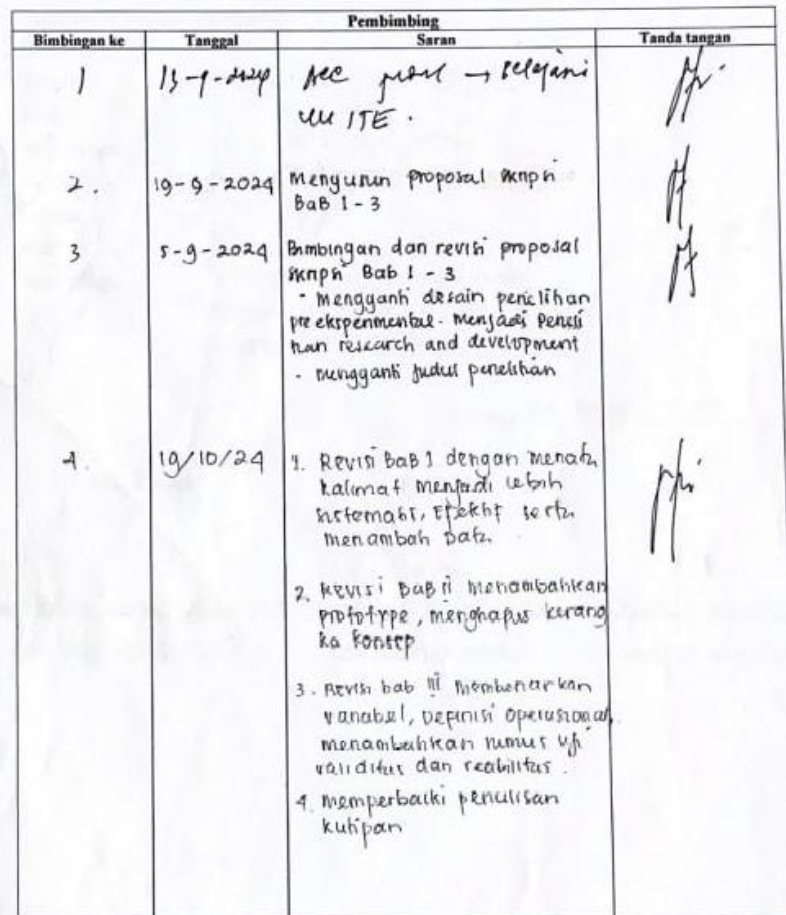 Pembimbing
Bimbingan ke Tanggal Saran Tanda tangan
1 13-9-2024 ACC → pelajari
UU ITE.
2. 19-9-2024 Menyusun proposal skripsi
BaB 1-3
3 5-9-2024 Bimbingan dan revisi proposal
skripsi Bab 1 - 3
- Mengganti desain penelitihan
pre eksperimental. Menjadi Peneli
han research and development
- mengganti judul penelitihan
4. 19/10/24 1. Revisi BaB 1 dengan menata
kalimat menjadi lebih
sistematis, Efektif serta
menambah Data.
2. Revisi BaB ii Menambahkan
prototype, menghapus kerang
ka konsep
3. Revisi bab iii Membenarkan
variabel, Definisi Operasional,
menambahkan rumus uji
validitas dan reabilitas.
4. Memperbaiki penulisan
kutipan